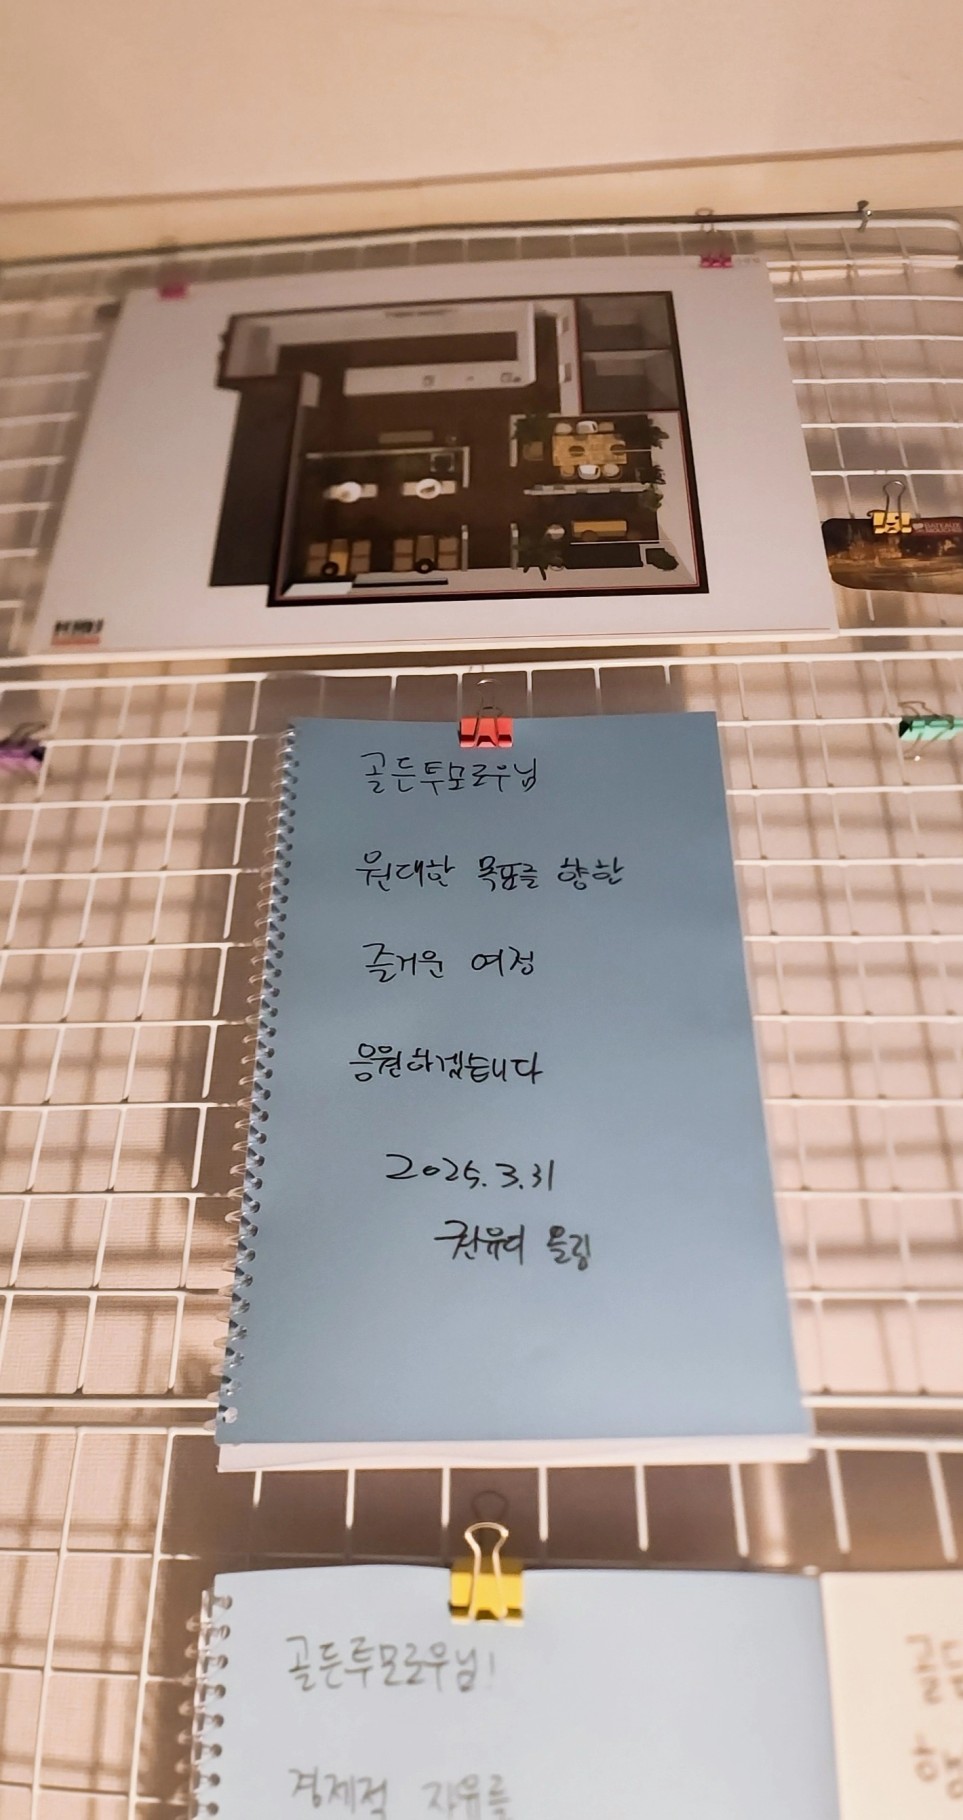 BATEAUX
MOUCHES
골든투모로우님
원대한 목표를 향한
즐거운 여정
응원하겠습니다
2025.3.31
권유디 올림
골든투모로우님!
경제적 자유를